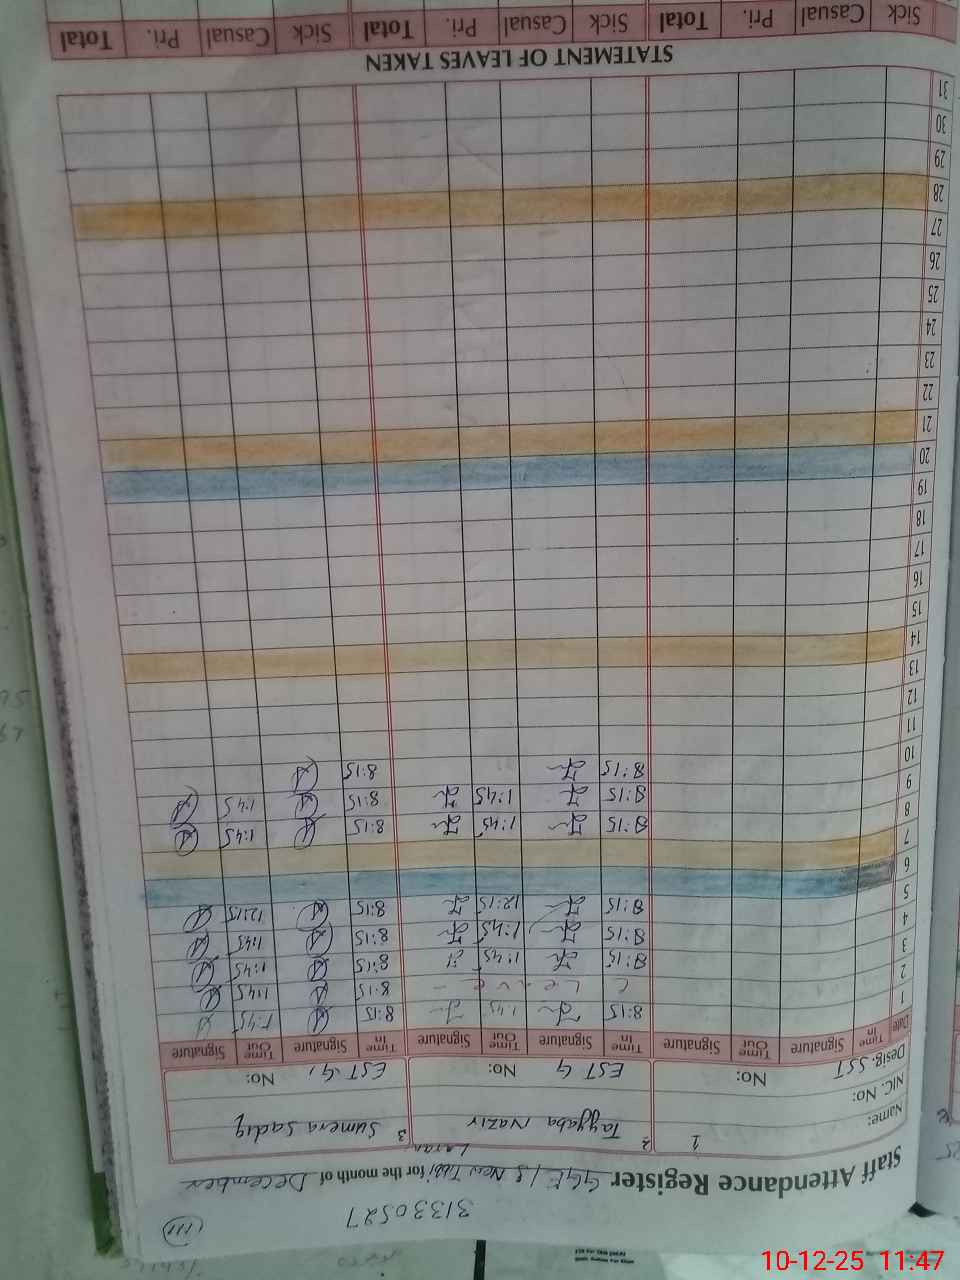 31330527
Staff Attendance Register GGE/S New Tibbi Laran for the month of December
Name: 1 2 Tayyaba Nazir 3 Sumera Sadiq
NIC. No:
Desig. SST No: EST G No: EST G, No:
Date Time In Signature Time Out Signature Time In Signature Time Out Signature Time In Signature Time Out Signature
1 8:15 1:45 8:15 1:45
2 Leave 8:15 1:45
3 8:15 1:45 8:15 1:45
4 8:15 1:45 8:15 1:45
5 8:15 12:15 8:15 12:15
6
7
8 8:15 1:45 8:15 1:45
9 8:15 1:45 8:15 1:45
10 8:15 8:15
11
12
13
14
15
16
17
18
19
20
21
22
23
24
25
26
27
28
29
30
31
STATEMENT OF LEAVES TAKEN
Sick Casual Pri. Total Sick Casual Pri. Total Sick Casual Pri. Total
10-12-25 11:47